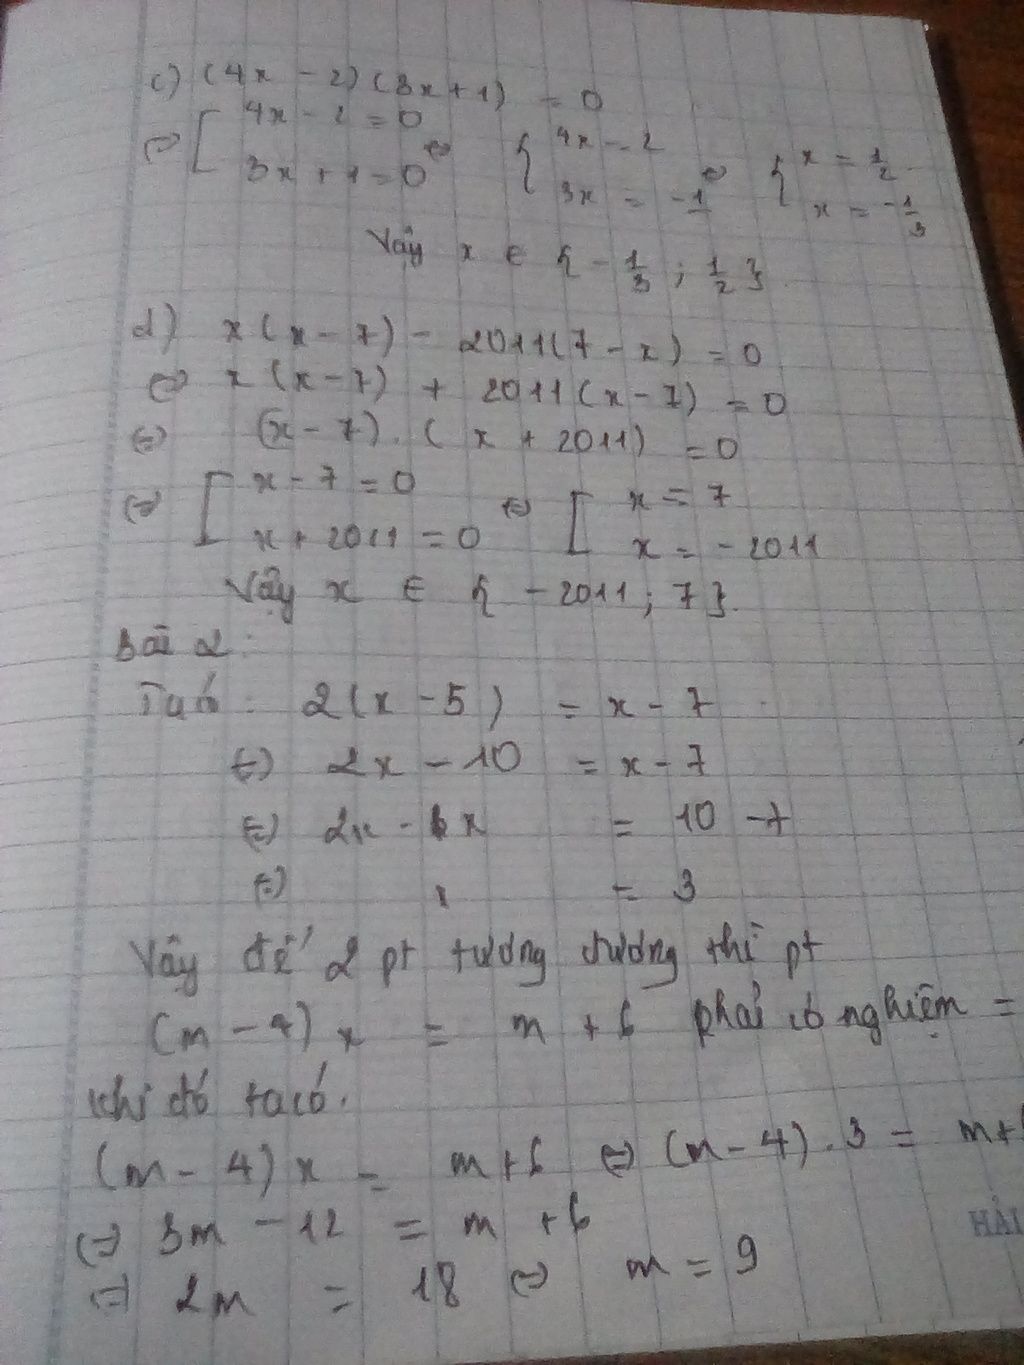 c) (4x - 2) (3x + 1) = 0
⇔ [ 4x - 2 = 0 ⇔ { 4x = 2 ⇔ { x = 1/2
3x + 1 = 0 3x = -1 x = -1/3
Vậy x ∈ { -1/3 ; 1/2 }.
d) x (x - 7) - 2011(7 - x) = 0
⇔ x (x - 7) + 2011 (x - 7) = 0
⇔ (x - 7) . ( x + 2011) = 0
⇔ [ x - 7 = 0 ⇔ [ x = 7
x + 2011 = 0 x = - 2011
Vậy x ∈ { - 2011 ; 7 }.
Bài 2 :
Ta có : 2(x - 5) = x - 7
⇔ 2x - 10 = x - 7
⇔ 2x - x = 10 - 7
⇔ x = 3
Vậy để 2 pt tương đương thì pt
(m - 4) x = m + 6 phải có nghiệm =
khi đó ta có.
(m - 4) x = m + 6 ⇔ (m - 4) . 3 = m + 6
⇔ 3m - 12 = m + 6
⇔ 2m = 18 ⇔ m = 9
HẢI